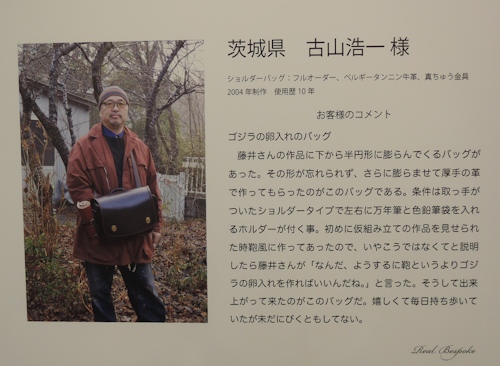 茨城県　古山浩一 様
ショルダーバッグ：フルオーダー、ベルギータンニン牛革、真ちゅう金具
2004 年制作　使用歴 10 年
お客様のコメント
ゴジラの卵入れのバッグ
　藤井さんの作品に下から半円形に膨らんでくるバッグが
あった。その形が忘れられず、さらに膨らませて厚手の革
で作ってもらったのがこのバッグである。条件は取っ手が
ついたショルダータイプで左右に万年筆と色鉛筆袋を入れ
るホルダーが付く事。初めに仮組み立ての作品を見せられ
た時鞄風に作ってあったので、いやこうではなくてと説明
したら藤井さんが「なんだ、ようするに鞄というよりゴジ
ラの卵入れを作ればいいんだね。」と言った。そうして出来
上がって来たのがこのバッグだ。嬉しくて毎日持ち歩いて
いたが未だにびくともしてない。
Real Bespoke